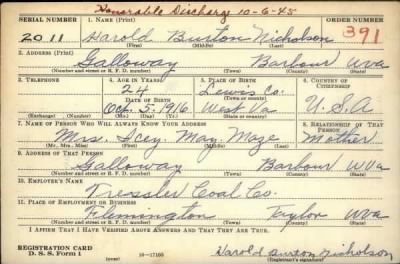 Honorable Discharg 10-6-45
SERIAL NUMBER 1. Name (Print) ORDER NUMBER
2011 Harold Burton Nicholson 391
(First) (Middle) (Last)
2. Address (Print)
Galloway Barbour WVa
(Number and street or R. F. D. number) (Town) (County) (State)
3. Telephone 4. Age in Years 5. Place of Birth 6. Country of Citizenship
24 Lewis Co.
Date of Birth (Town or county)
Oct. 5, 1916 West Va U.S.A
(Exchange) (Number) (Mo.) (Day) (Yr.) (State or country)
7. Name of Person Who Will Always Know Your Address 8. Relationship of That Person
Mrs. Icey May Maze Mother
(Mr., Mrs., Miss) (First) (Middle) (Last)
9. Address of That Person
Galloway Barbour WVa
(Number and street or R. F. D. number) (Town) (County) (State)
10. Employer's Name
Tressler Coal Co.
11. Place of Employment or Business
Flemington Taylor WVa
(Number and street or R. F. D. number) (Town) (County) (State)
I Affirm That I Have Verified Above Answers and That They Are True.
REGISTRATION CARD
D. S. S. Form 1 16-17105 Harold Burton Nicholson
(over) (Registrant's signature)